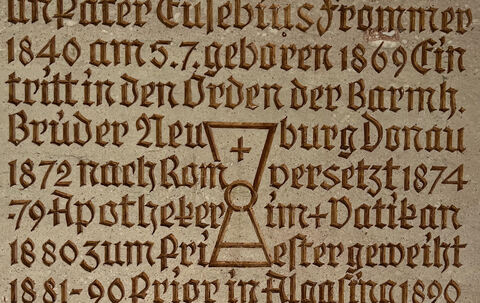 an Pater Eusebius Frommer
1840 am 5.7. geboren 1869 Ein
tritt in den Orden der Barmh.
Brüder Neuburg Donau
1872 nach Rom versetzt 1874
-79 Apotheker im + Vatikan
1880 zum Priester geweiht
1881-90 Prior in Algasing 1890